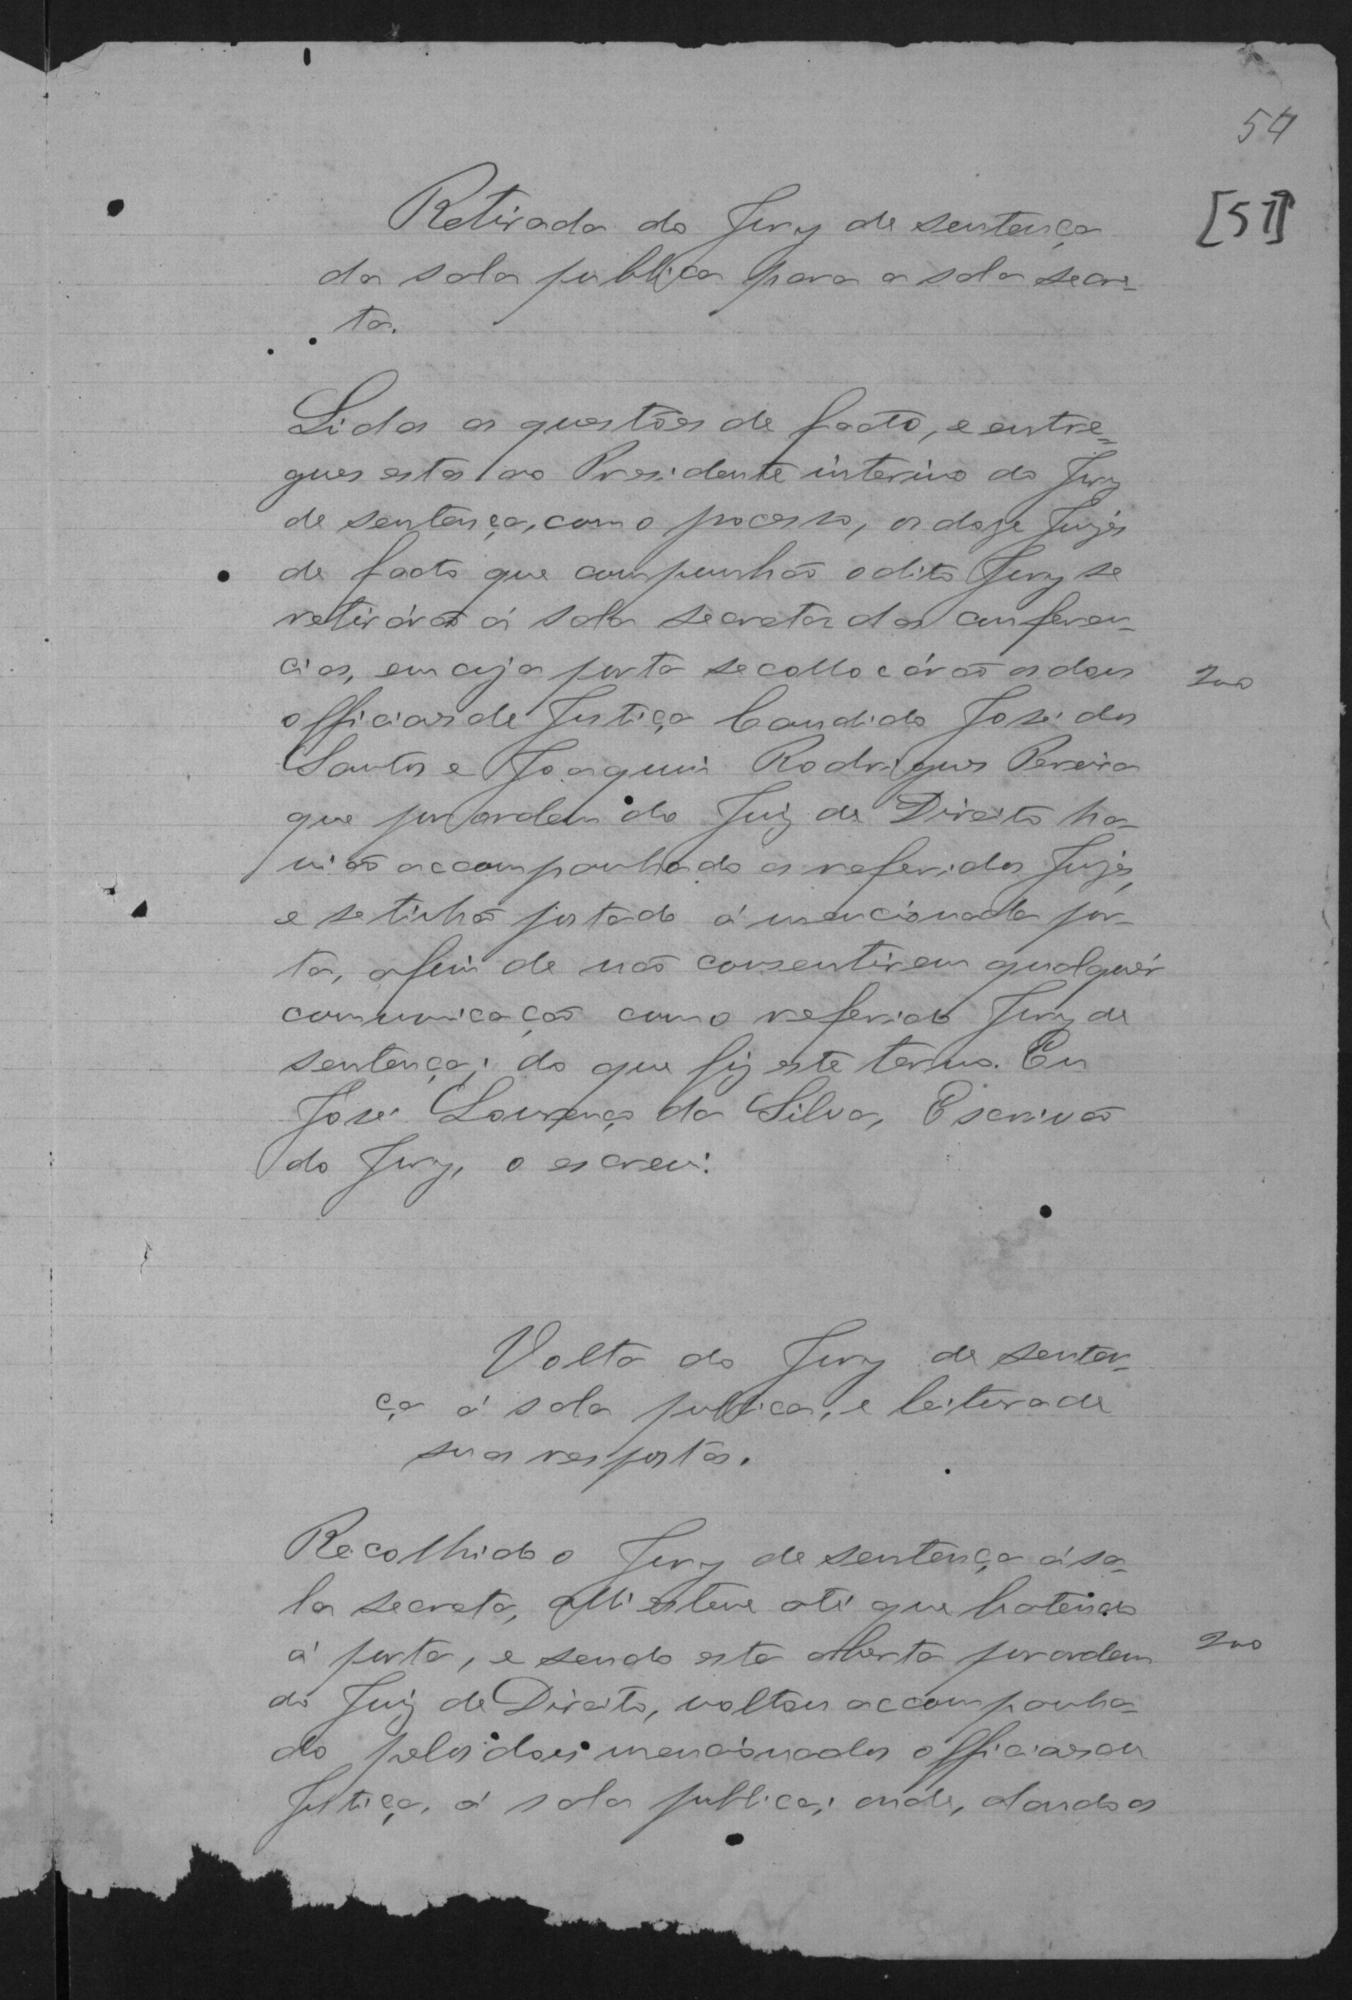 54
[51]
Retirada do Jury de sentença
da sala publica para a sala secre-
ta.
Lidas as questões de facto, e entre-
gues estas ao Presidente interino do Jury
de sentença, com o processo, os doze Juizes
de facto que compunhão o dito Jury se
retirárão á sala secreta das conferen-
cias, em cuja porta se collocárão os dous
officiaes de Justiça Candido José dos
Santos e Joaquim Rodrigues Pereira
que por ordem do Juiz de Direito ha-
vião accompanhado os referidos Juizes,
e se tinhão postado á mencionada por-
ta, afim de não consentirem qualquér
communicação com o referido Jury de
sentença; do que fiz este termo. Eu
José Lourenço da Silva, Escrivão
do Jury, o escrevi.
Volta do Jury de senten-
ça á sala publica, e leitura de
suas respostas.
Recolhido o Jury de sentença á sa-
la secreta, alli esteve até que batendo
á porta, e sendo esta aberta por ordem
do Juiz de Direito, voltou accompanha-
do pelos dois mencionados officiaes de
Justiça, á sala publica; onde, dando os